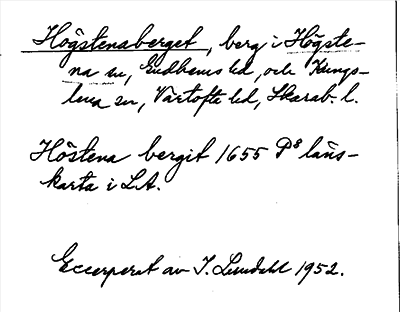 Högstenaberget, berg i Högste-
na sn, Gudhems hd, och Kungs-
lena sn, Vartofte hd, Skarab. l.
Höstena bergit 1655 P8 läns-
karta i LA.
Excerperat av I. Lundahl 1952.